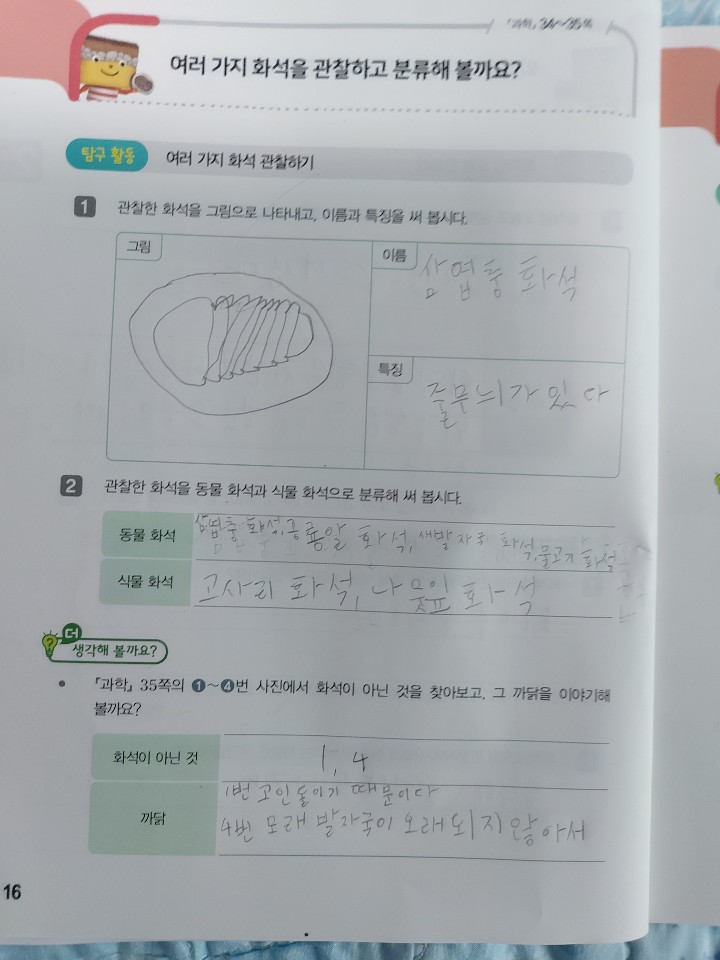 『과학』 34~35쪽
여러 가지 화석을 관찰하고 분류해 볼까요?
탐구 활동 여러 가지 화석 관찰하기
1 관찰한 화석을 그림으로 나타내고, 이름과 특징을 써 봅시다.
그림
이름
삼엽충 화석
특징
줄무늬가 있다
2 관찰한 화석을 동물 화석과 식물 화석으로 분류해 써 봅시다.
동물 화석 삼엽충 화석, 공룡알 화석, 새발자국 화석, 물고기 화석
식물 화석 고사리 화석, 나뭇잎 화석
더
생각해 볼까요?
• 『과학』 35쪽의 ❶~❹번 사진에서 화석이 아닌 것을 찾아보고, 그 까닭을 이야기해
볼까요?
화석이 아닌 것 1, 4
까닭
1번 고인돌이기 때문이다
4번 모래 발자국이 오래되지 않아서
16